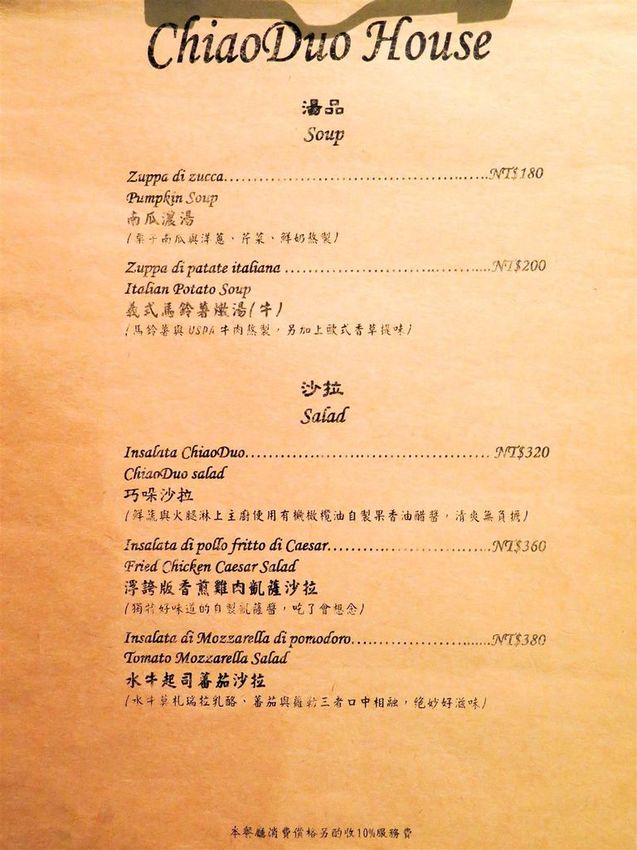 ChiaoDuo House
湯品
Soup
Zuppa di zucca……………………………………NT$180
Pumpkin Soup
南瓜濃湯
(栗子南瓜與洋蔥、芹菜、鮮奶熬製)
Zuppa di patate italiana ……………………………NT$200
Italian Potato Soup
義式馬鈴薯燉湯(牛)
(馬鈴薯與 USDA 牛肉熬製，另加上歐式香草提味)
沙拉
Salad
Insalata ChiaoDuo…………………………………… NT$320
ChiaoDuo salad
巧哚沙拉
(鮮蔬與火腿淋上主廚使用有機橄欖油自製果香油醋醬，清爽無負擔)
Insalata di pollo fritto di Caesar………………………NT$360
Fried Chicken Caesar Salad
浮誇版香煎雞肉凱薩沙拉
(獨特好味道的自製凱薩醬，吃了會想念)
Insalata di Mozzarella di pomodoro……………………NT$380
Tomato Mozzarella Salad
水牛起司蕃茄沙拉
(水牛莫札瑞拉乳酪、蕃茄與羅勒三者口中相融，絕妙好滋味)
本餐廳消費價格另酌收10%服務費